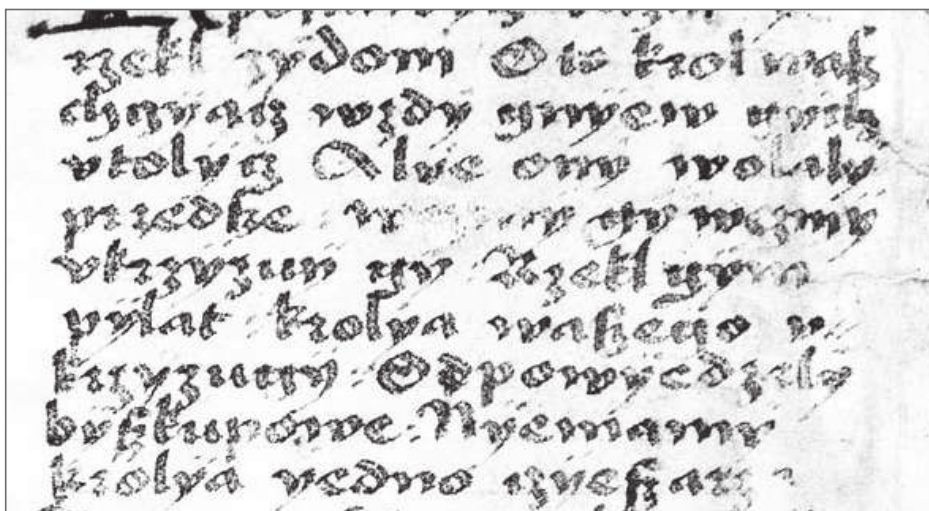 rzekl zydom Oto krol wasz
chczącz wżdy gnyew gych
vtolycz Alye ony wolaly
przedsze weżmy gy weżmy
vkrzyzuy gy Rzekl gym
pylat krolya waszego v
krzyzugy Odpowyedzely
byszkupowye Nyemamy
krolya yedno czyeszarz